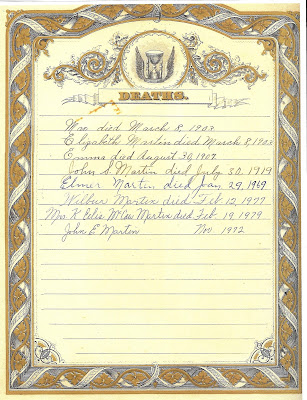 DEATHS.
Wm died March 8, 1903
Elizabeth Martin died March 8, 1903
Emma died August 30, 1907
John S Martin died July 30, 1919
Elmer Martin died Jan 29, 1969
Wilbur Martin died Feb. 12, 1977
Mrs K Ellis Martin died Feb. 19, 1979
John E Martin Nov 1972